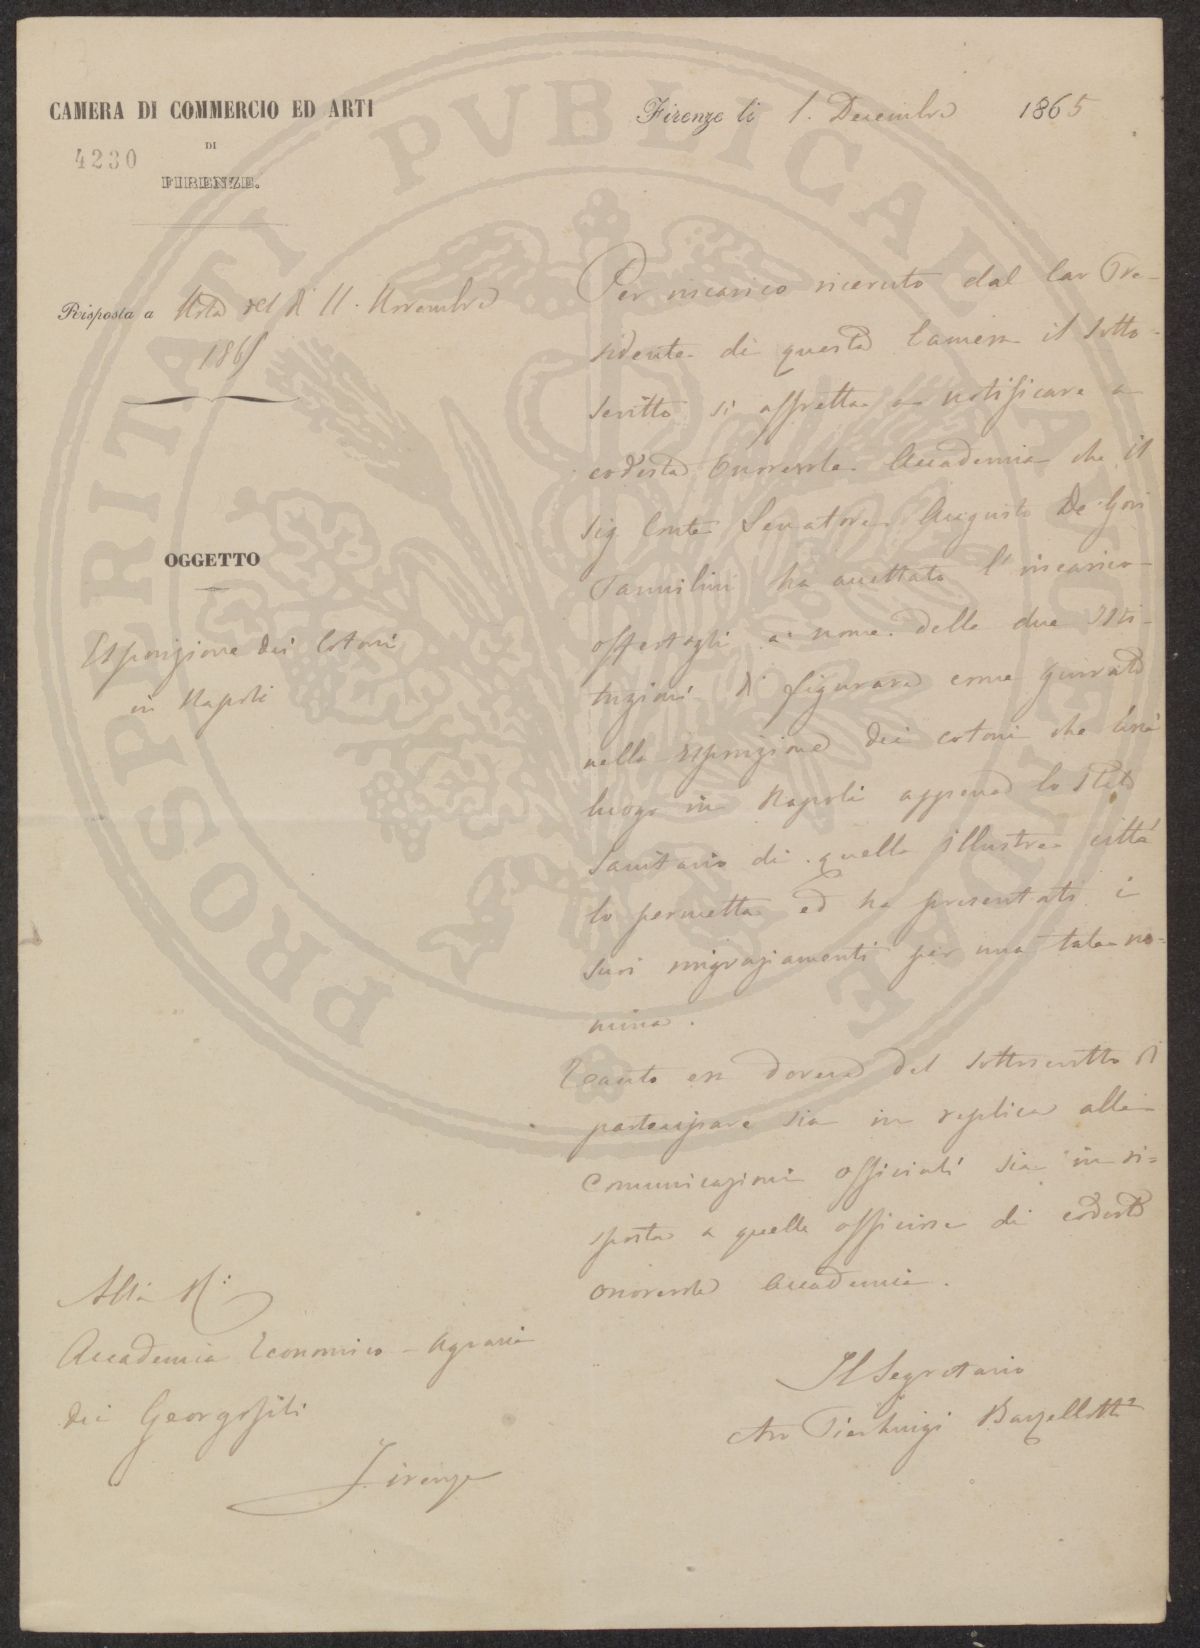 CAMERA DI COMMERCIO ED ARTI
DI
FIRENZE.
4230
Firenze li 1. Decembre 1865
Risposta a Nota del dì 11. Novembre
1865
OGGETTO
Esposizione dei Cotoni
in Napoli
Per incarico ricevuto dal Cav Pre-
sidente di questa Camera il Sotto-
scritto si affretta a notificare a
codesta Onorevole Accademia che il
Sig. Conte Senatore Augusto De' Gori
Pannilini ha accettato l'incarico
offertogli a nome delle due Isti-
tuzioni di figurare come giurato
nella Esposizione dei cotoni che avrà
luogo in Napoli appena lo Stato
Sanitario di quella illustre città
lo permetta ed ha presentati i
suoi ringraziamenti per una tale no-
mina.
Tanto era dovere del sottoscritto di
partecipare sia in replica alle
Comunicazioni officiali sia in ri-
sposta a quelle officiose di codesta
Onorevole Accademia.
Il Segretario
Avv Pierluigi Barzellotti
Alla R.
Accademia Economico-Agraria
dei Georgofili
Firenze
PROSPERITATI PVBLICAE AVGENDAE